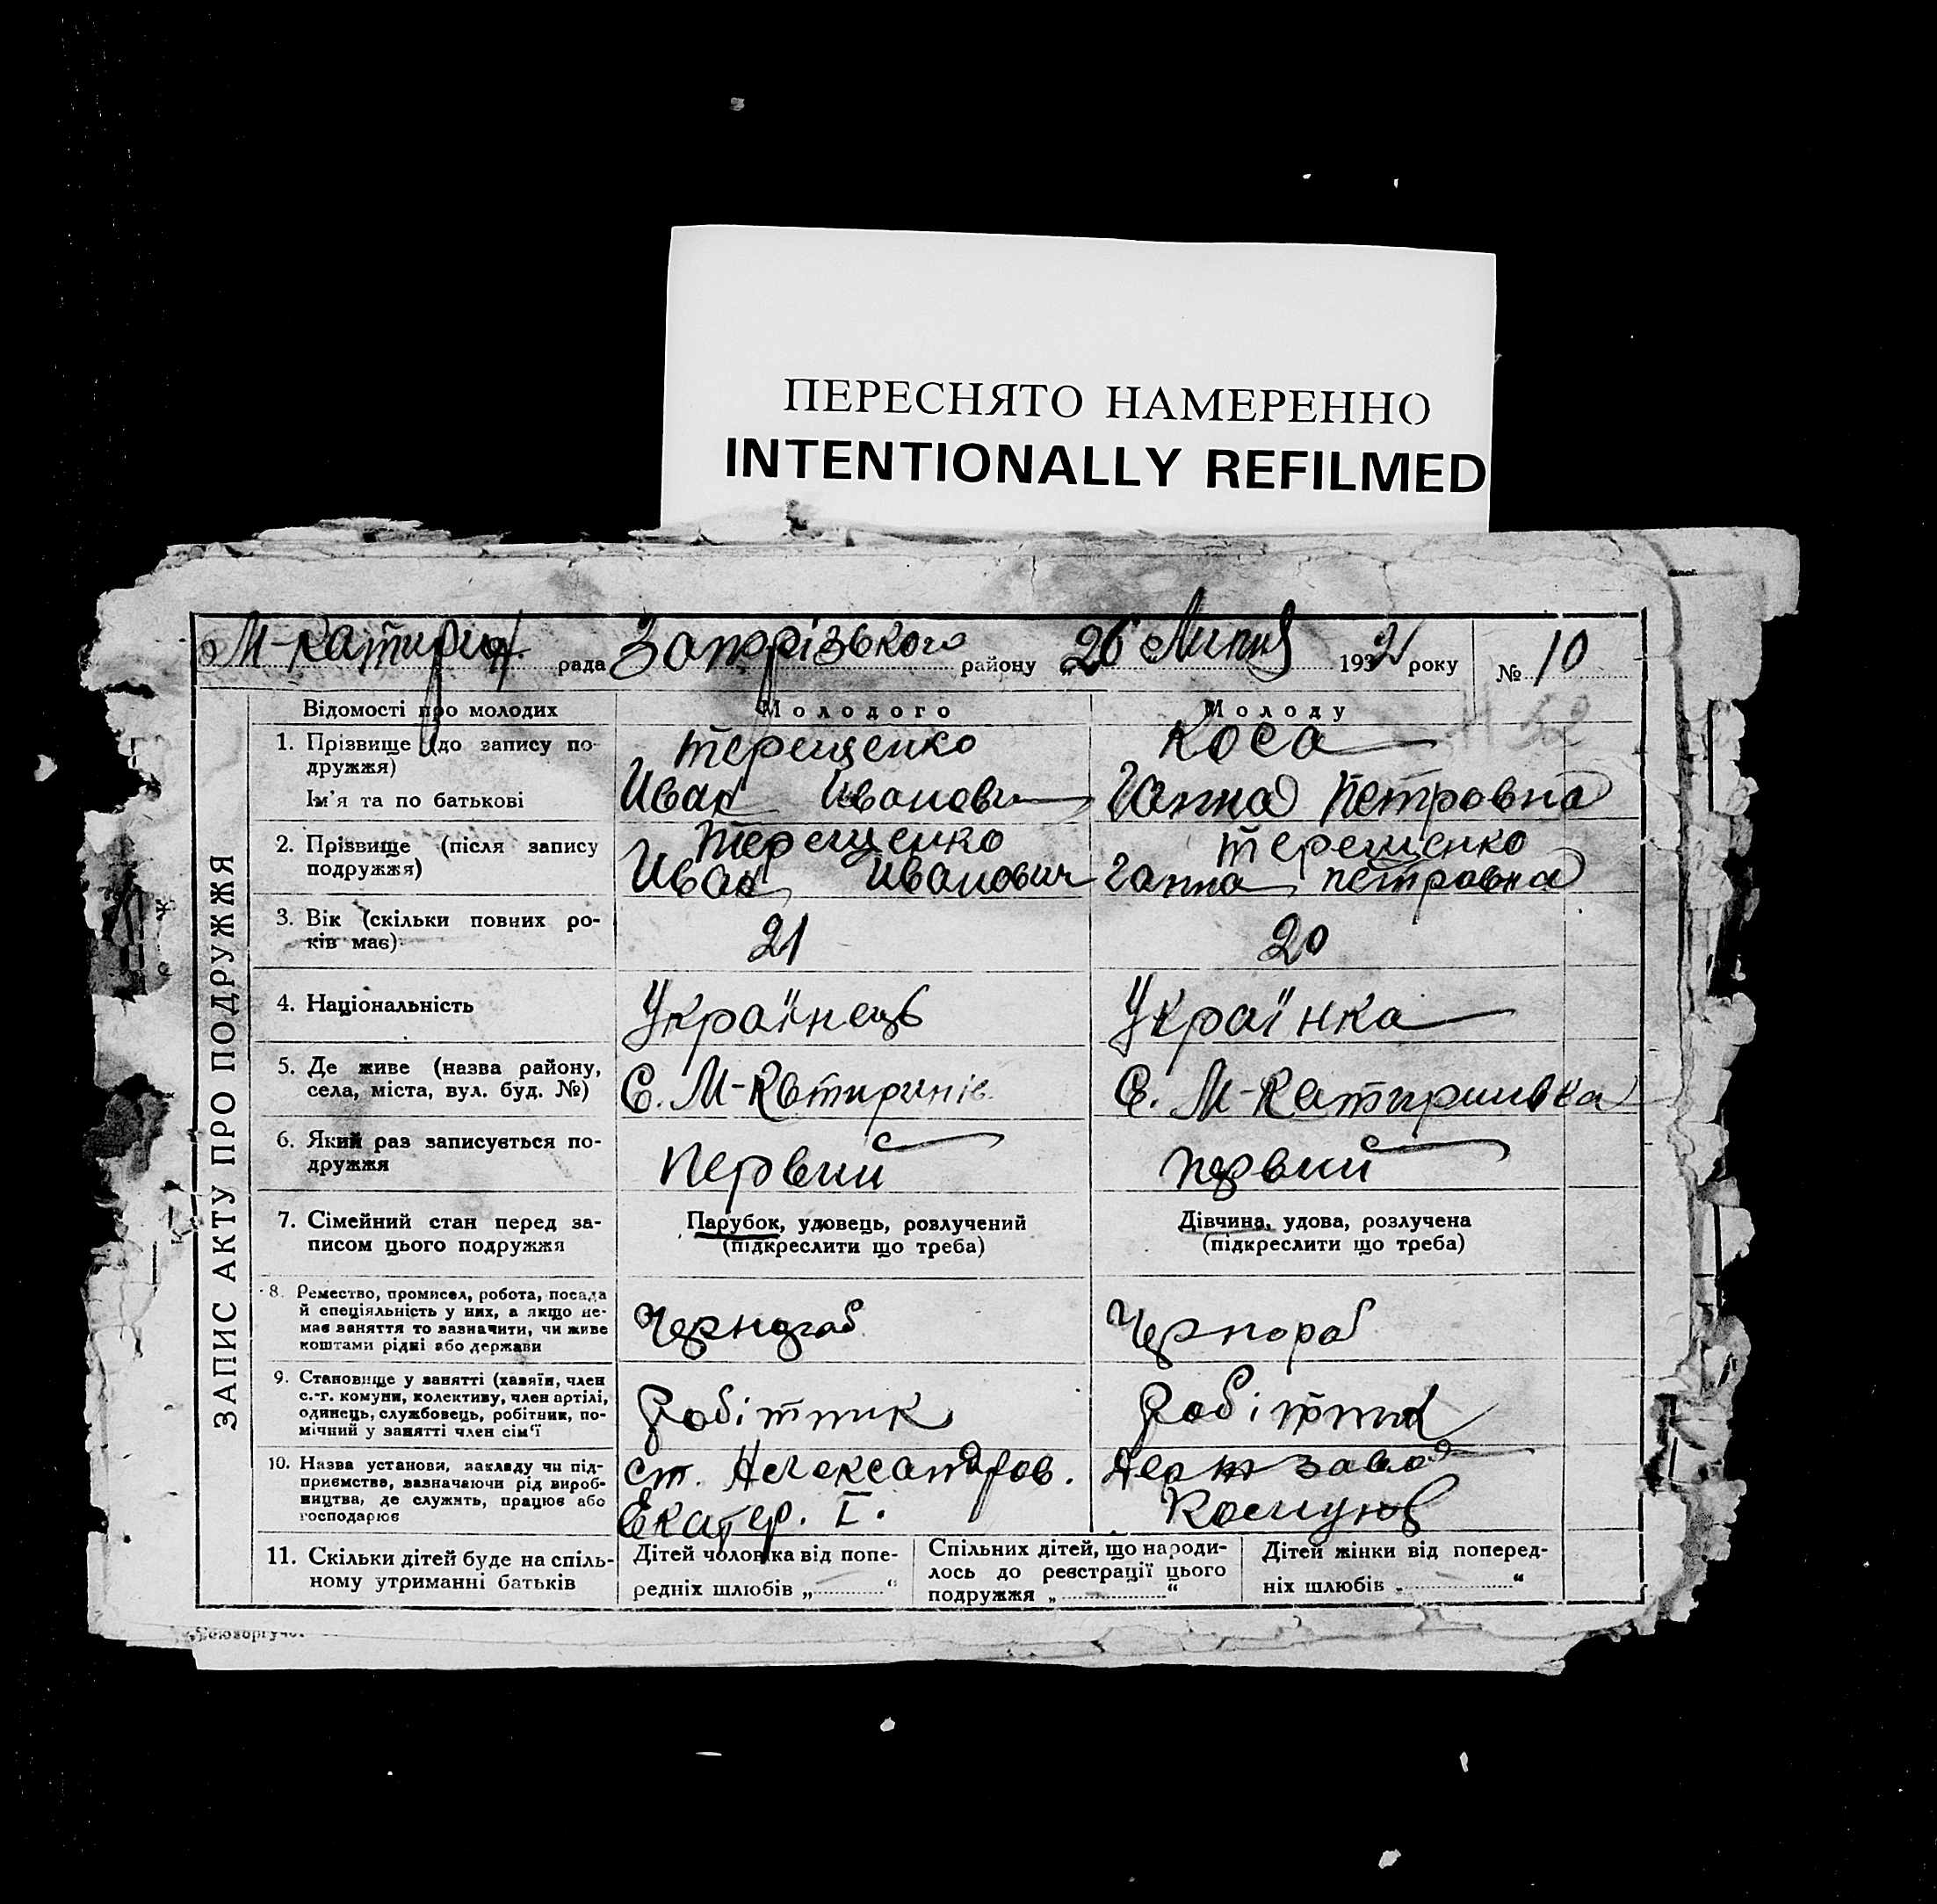 ПЕРЕСНЯТО НАМЕРЕННО
INTENTIONALLY REFILMED
М-Катерин. рада Запорізького району 26 Липня 1932 року № 10
ЗАПИС АКТУ ПРО ПОДРУЖЖЯ
Відомості про молодих Молодого Молоду
1. Прізвище (до запису подружжя) Терещенко Коса
Ім'я та по батькові Иван Иванович Ганна Петровна
2. Прізвище (після запису подружжя) Терещенко Терещенко
Иван Иванович Ганна Петровна
3. Вік (скільки повних ро-
ків має) 21 20
4. Національність Українець Українка
5. Де живе (назва району,
села, міста, вул. буд. №) С. М-Катиринів. С. М-Катиринивка
6. Який раз записується по-
дружжя Первий Первий
7. Сімейний стан перед за-
писом цього подружжя
Парубок, удовець, розлучений
(підкреслити що треба)
Дівчина, удова, розлучена
(підкреслити що треба)
8. Ремество, промисел, робота, посада
й спеціяльність у них, а якщо не-
має заняття то зазначити, чи живе
коштами рідні або держави
Чернораб Чернораб
9. Становище у занятті (хазяїн, член
с.-г. комуни, колективу, член артілі,
одинець, службовець, робітник, по-
мічний у занятті член сім'ї
Робітник Робітник
10. Назва установи, закладу чи під-
приємства, зазначаючи рід вироб-
ництва, де служить, працює або
господарює
ст. Александров.
Екатер. I.
завод
Комунар
11. Скільки дітей буде на спіль-
ному утриманні батьків
Дітей чоловіка від попе-
редніх шлюбів „ “
Спільних дітей, що народи-
лось до реєстрації цього
подружжя „ “
Дітей жінки від поперед-
ніх шлюбів „ “